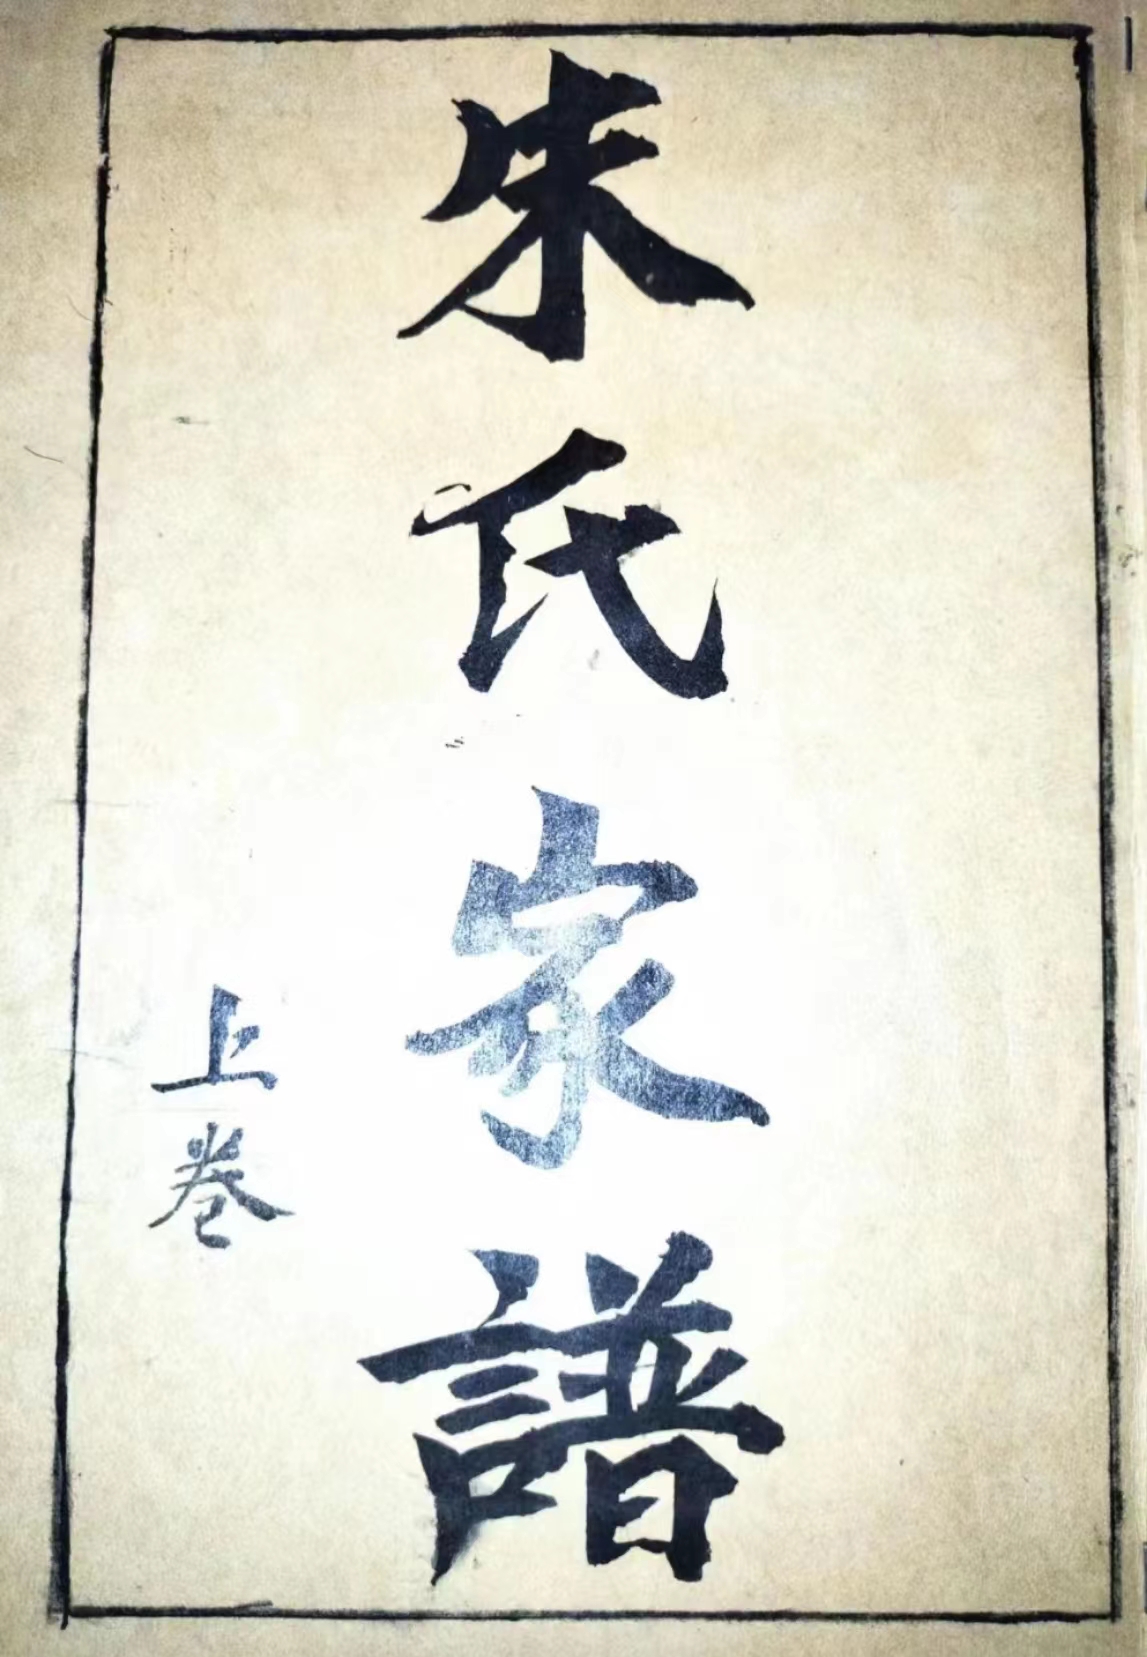 朱氏家譜
上卷